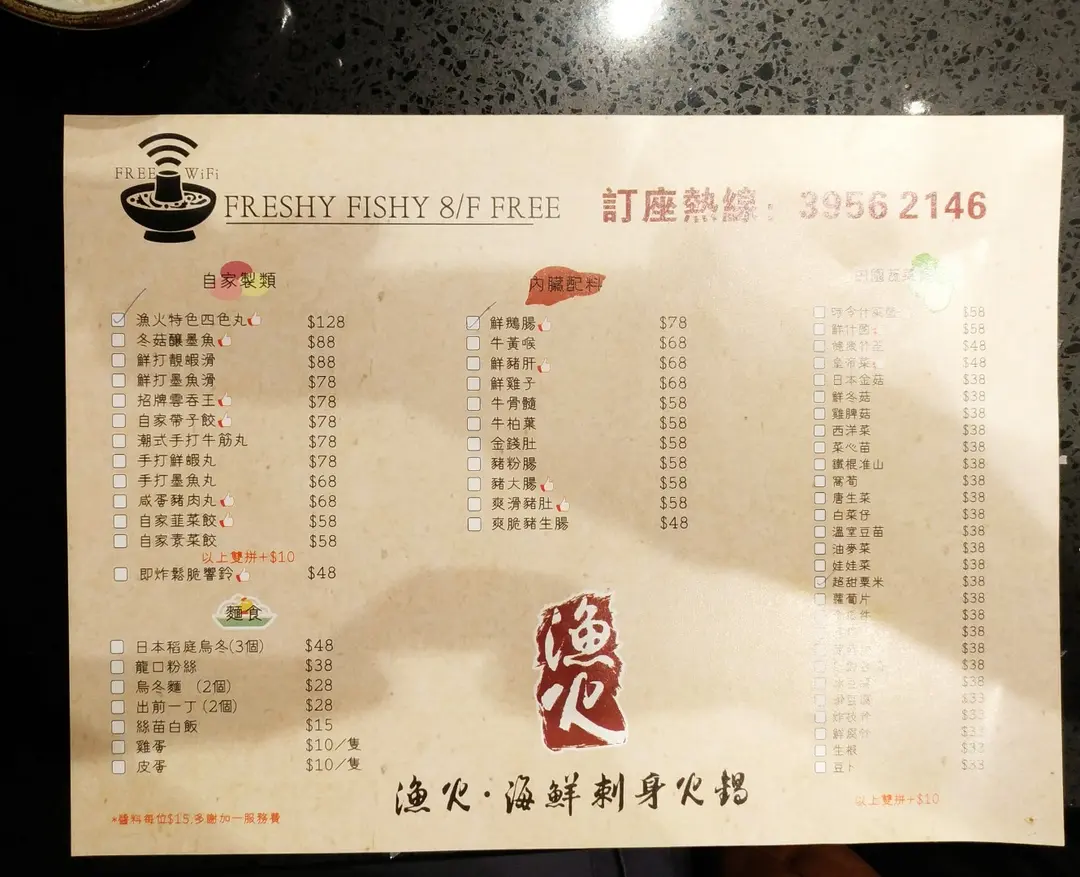 FREE WiFi
FRESHY FISHY 8/F FREE
訂座熱線: 3956 2146
自家製類
漁火特色四色丸 $128
冬菇釀墨魚 $88
鮮打靚蝦滑 $88
鮮打墨魚滑 $78
招牌雲吞王 $78
自家帶子餃 $78
潮式手打牛筋丸 $78
手打鮮蝦丸 $78
手打墨魚丸 $68
咸蛋豬肉丸 $68
自家韮菜餃 $58
自家素菜餃 $58
以上雙拼+$10
即炸鬆脆響鈴 $48
麵食
日本稻庭烏冬(3個) $48
龍口粉絲 $38
烏冬麵 (2個) $28
出前一丁(2個) $28
絲苗白飯 $15
雞蛋 $10/隻
皮蛋 $10/隻
*醬料每位$15,多謝加一服務費
內臟配料
鮮鵝腸 $78
牛黃喉 $68
鮮豬肝 $68
鮮雞子 $68
牛骨髓 $58
牛柏葉 $58
金錢肚 $58
豬粉腸 $58
豬大腸 $58
爽滑豬肚 $58
爽脆豬生腸 $48
漁火
漁火·海鮮刺身火鍋
$58
$58
$48
皇帝菜 $48
日本金菇 $38
鮮冬菇 $38
雞脾菇 $38
西洋菜 $38
菜心苗 $38
鐵棍准山 $38
萵筍 $38
唐生菜 $38
白菜仔 $38
溫室豆苗 $38
油麥菜 $38
娃娃菜 $38
超甜粟米 $38
蘿蔔片 $38
$38
$38
$38
$38
$38
$33
$33
$33
生根 $33
豆卜 $33
以上雙拼+$10